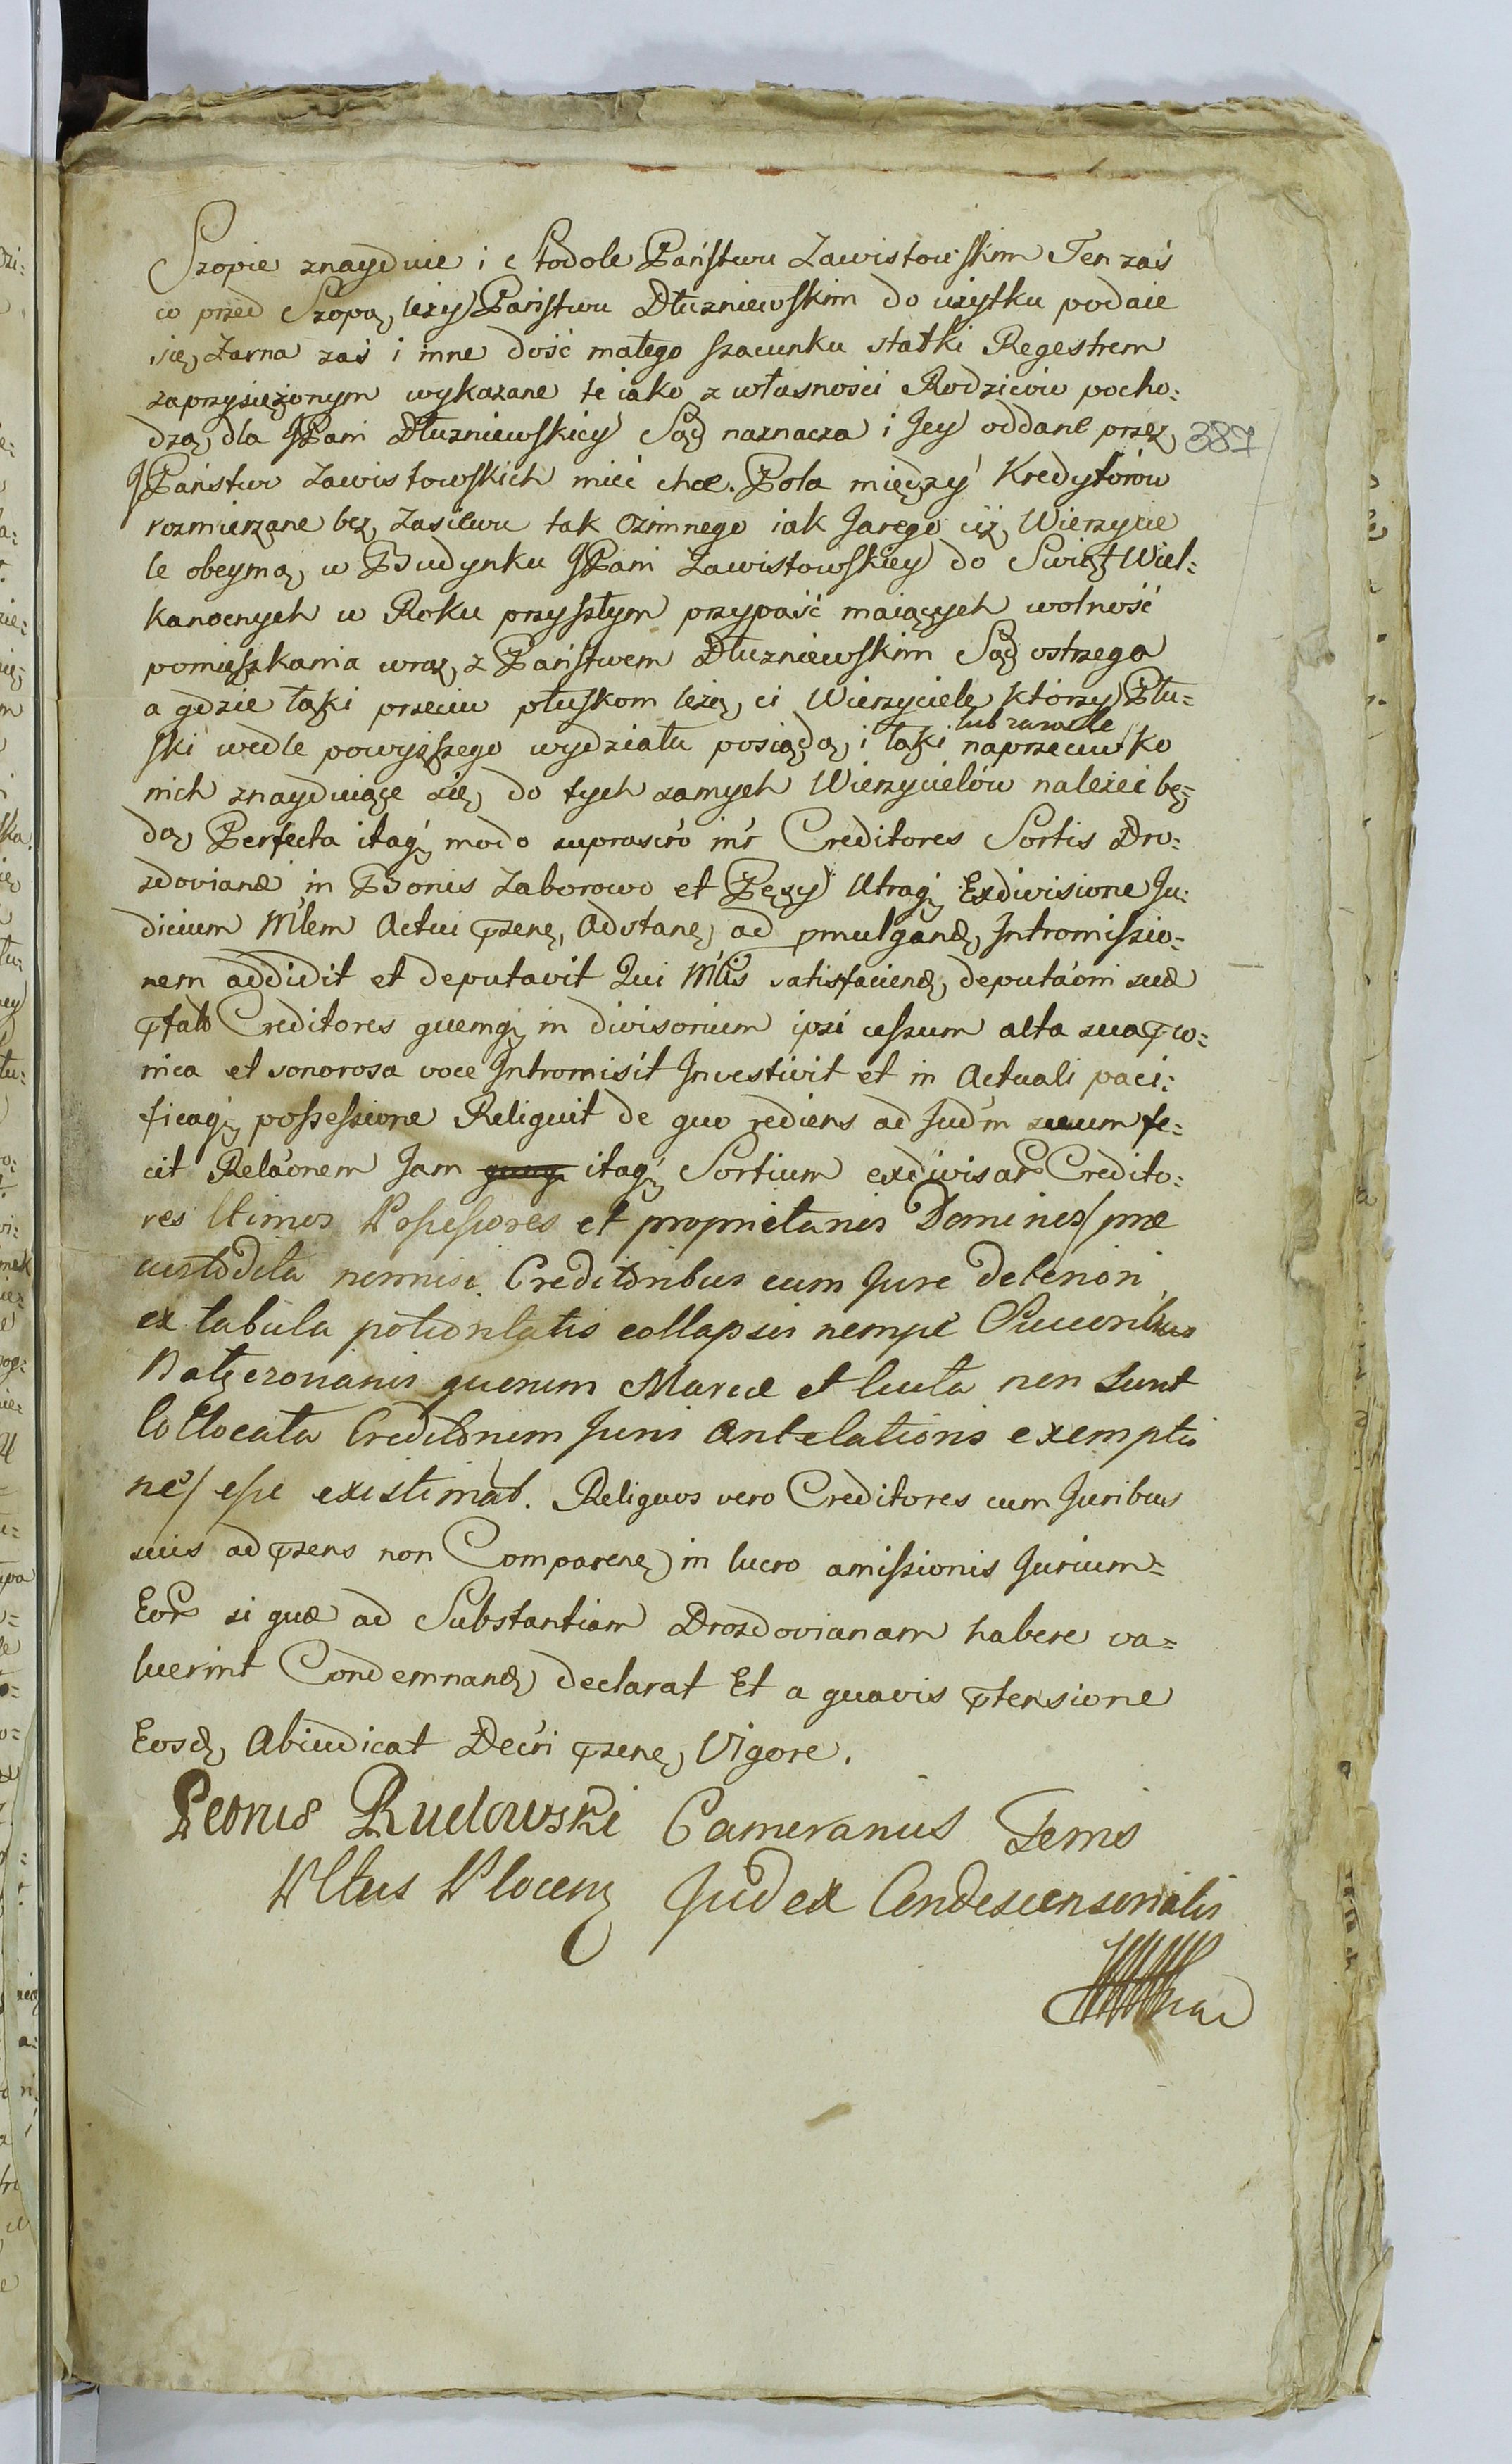 Szopie znayduie i Stodole Państwu Zawistowskim Ten zaś
co przed Szopą leży Państwu Dłużniewskim do użytku podaie
się, Żarna zaś i inne dość małego szacunku statki Regestrem
zaprzysiężonym wykazane te iako z własności Rodziców pocho:
dzą, dla JPani Dłużniewskiey Sąd naznacza i Jey oddane przez
387
JPaństwo Zawistowskich mieć chce. Pola między Kredytorów
rozmierzane bez Zasiewu tak Ozimnego iak Jarego ciż Wierzycie
le obeymą, w Budynku JPani Zawistowskiey do Swiąt Wiel:
kanocnych w Roku przyszłym przypaść maiących wolność
pomięszkania wraz z Państwem Dłużniewskim Sąd ostrzega
a gdzie łąki przeciw płuskom leżą, ci Wierzyciele którzy Płu:
ski wedle powyższego wydziału posiądą, i łąki naprzeciwko
lub zarośle
nich znayduiące się, do tych samych Wierzycielów należeć bę:
dą, Perfecta itaq́ modo suprascr̃o int̃ Creditores Sortis Dro:
zdovianæ in Bonis Zaborowo et Pęsy Utraq́ Exdivisione Ju:
dicium Mt̃lem Actui p̃zenẽ, Adstanẽ, ad pmulgand, Intromissio:
nem addidit et deputavit Qui Mt̃lis satisfaciend, deputãoni suæ
p̃fatõs Creditores quemq́ in divisorium ipsi cessum alta sua p̃co:
nica et sonorosa voce Intromisit Investivit et in Actuali paci:
ficaq́ possessione Reliquit de quo rediens ad Jud̃m suum fe:
cit Relãonem Jam itaq́ Sortium exdivisar Credito:
res ltimos Possessores et proprietarios Dominos/ præ
custodita nonnisi Creditoribus cum Jure deteriori
ex tabula potioritatis collapsis nempe Succoribus
quorum Marcæ et lucta non sunt
Collocata Creditorum Juris Antelationis exemptio
ne/ esse existimat. Reliquos vero Creditores cum Juribus
suis ad p̃zens non Comparenẽ, in lucro amissionis Jurium=
Eor si quæ ad Substantiam Drozdovianam habere va=
luerint Condemnand, declarat Et a quavis p̃tensione
Eosd, Abiudicat Decr̃i p̃zenẽ, Vigore.
Petrus Rudowski Cameranius Terr̃is
Pltus Plocenẽ Judex Condescensorialis